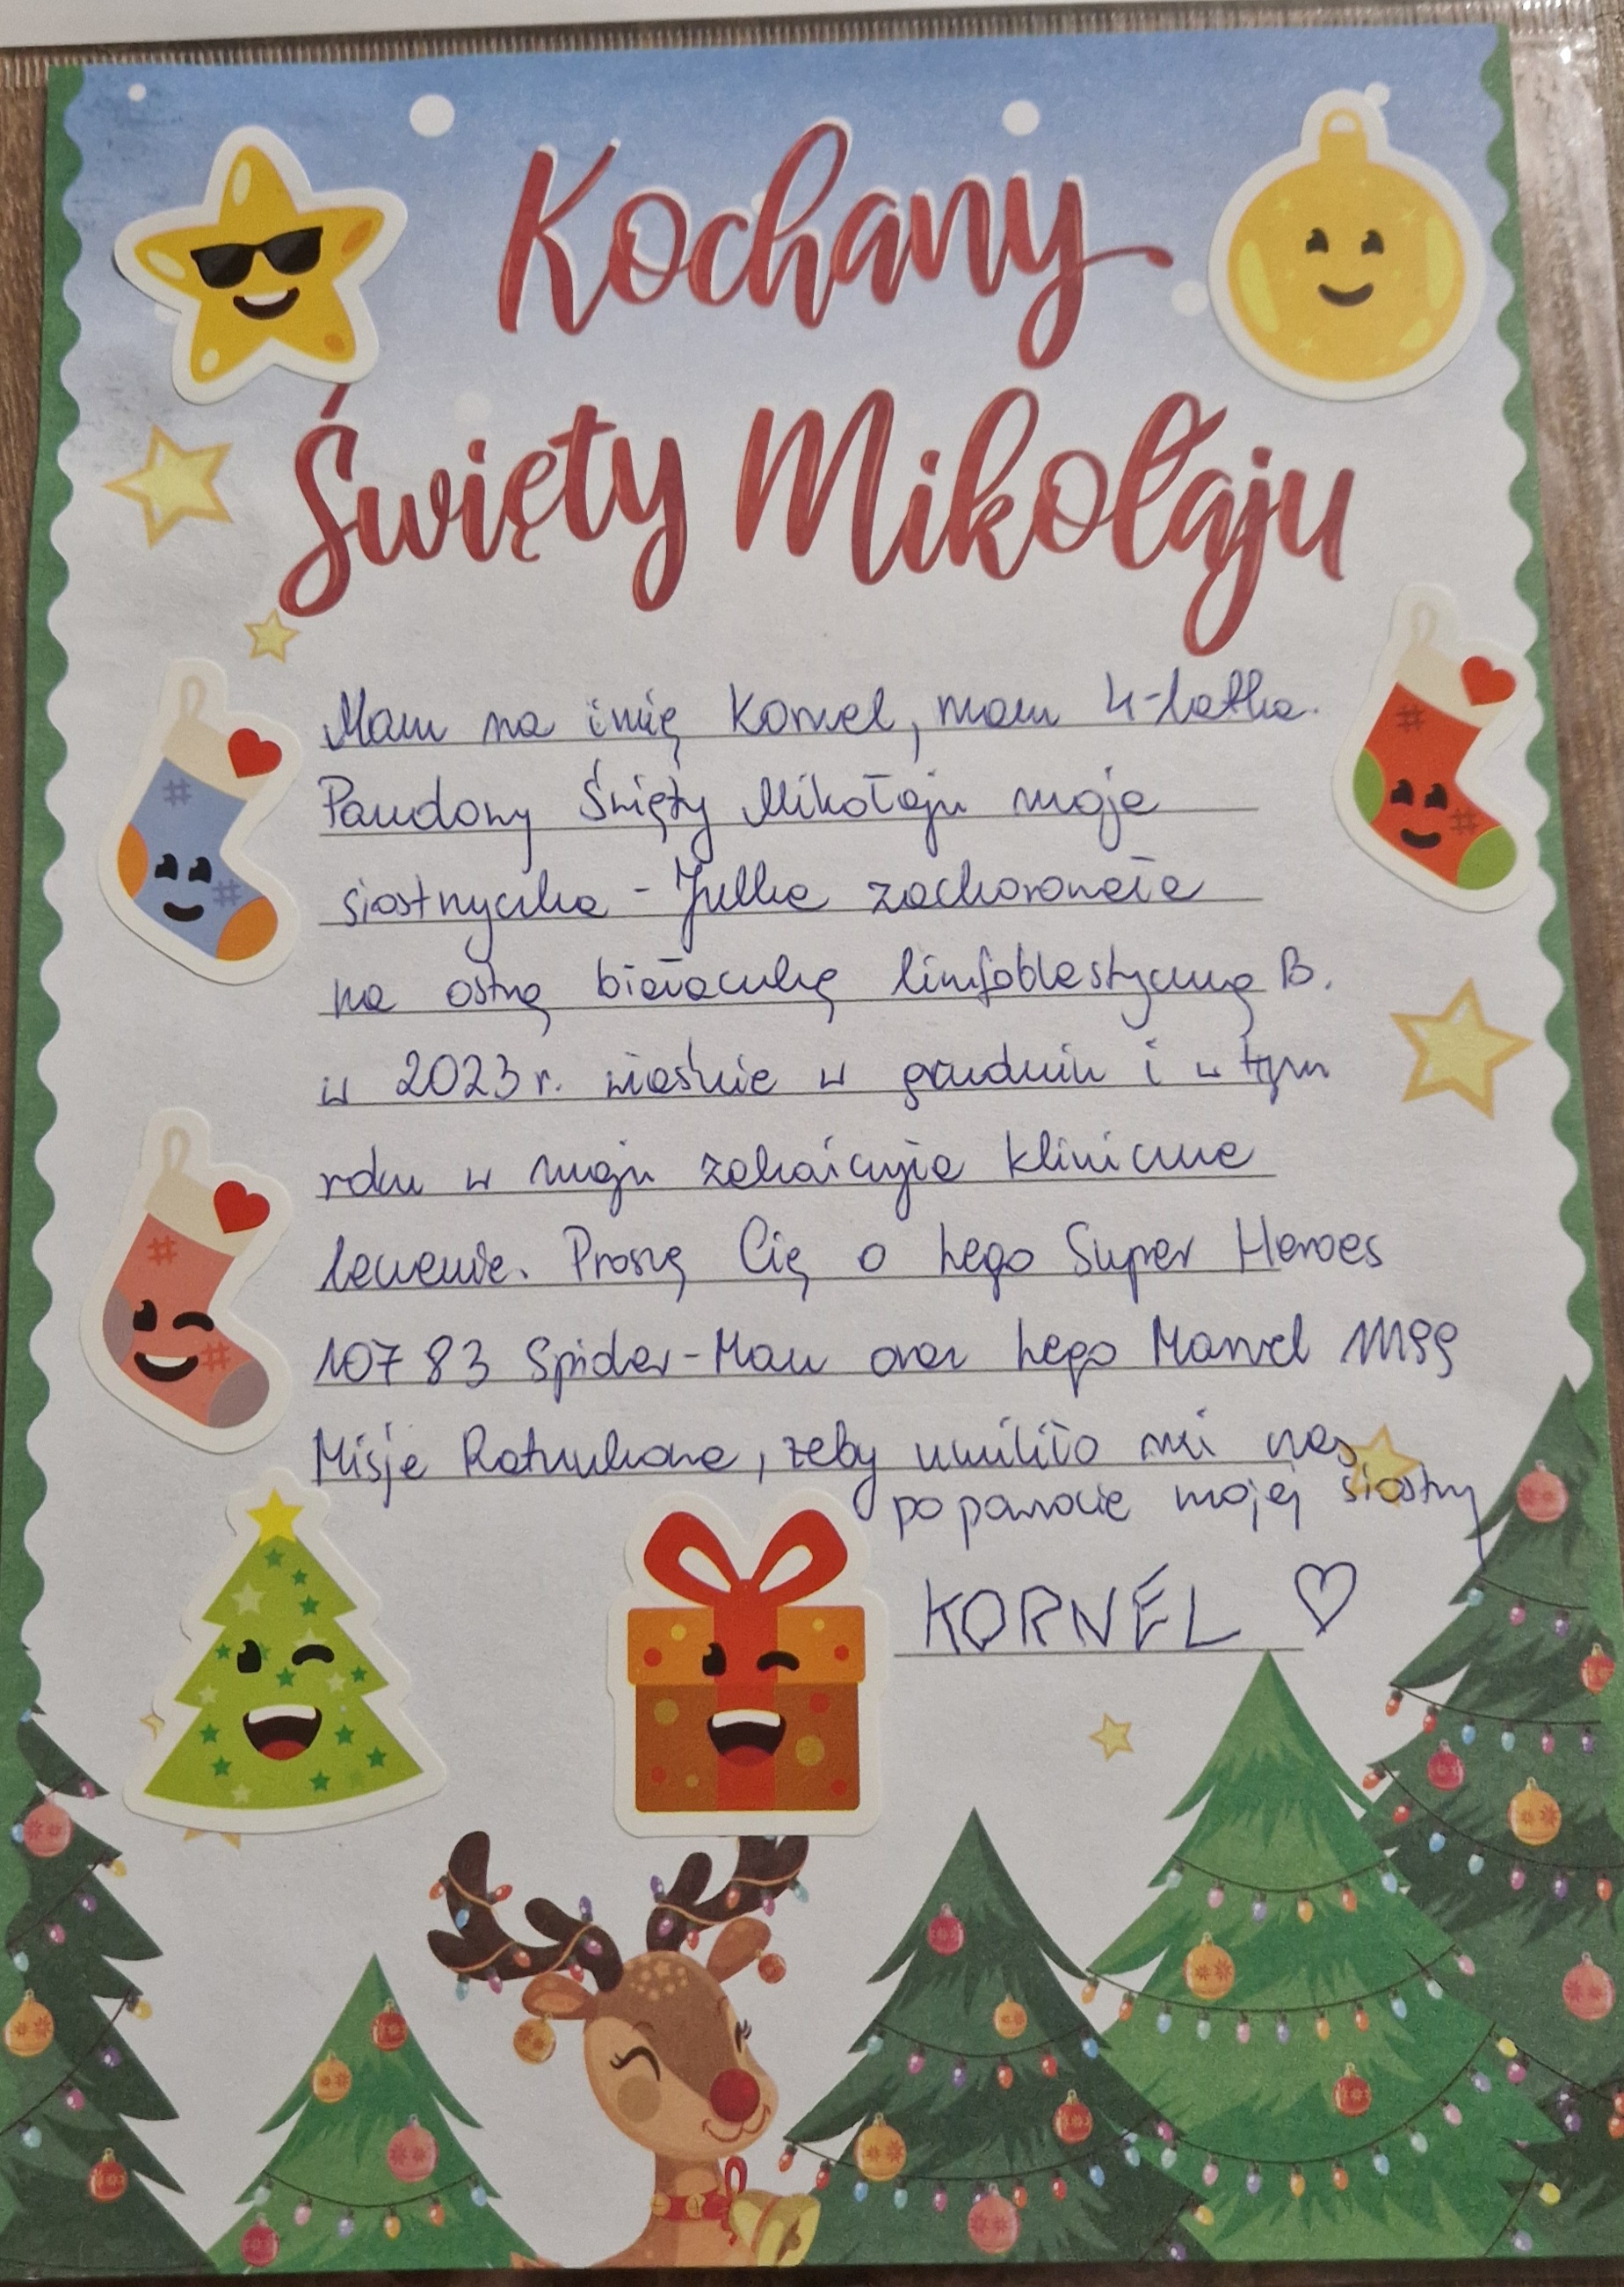 Kochany
Święty Mikołaju
Mam na imię Kornel, mam 4-latka.
Pandony Święty Mikołaju moja
siostrzyczka - Julka zachorowała
na ostrą białaczkę limfoblastyczną B.
w 2023 r. właśnie w grudniu i w tym
roku w maju zakończyła kliniczne
leczenie. Proszę Cię o Lego Super Heroes
10783 Spider-Man oraz Lego Marvel
Misja Ratunkowa, żeby umiliło mi czas
po powrocie mojej siostry
KORNEL ♡